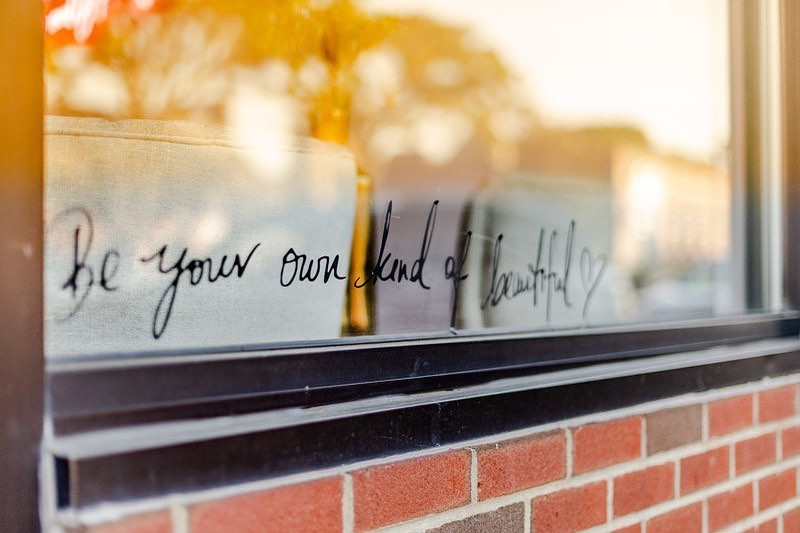 Be your own kind of beautiful ♡